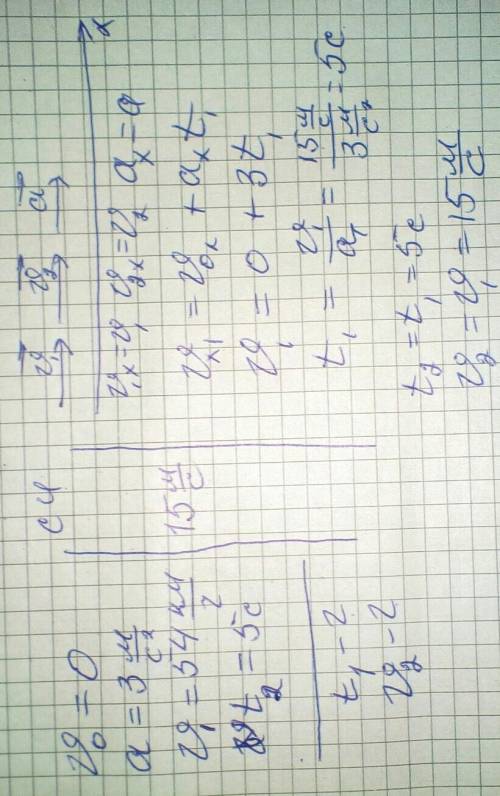 υ₀ = 0
a = 3 м/с²
υ₁ = 54 км/г
t₂ = 5с
t₁ - ?
υ₂ - ?
СИ
15 м/с
υ⃗₁ υ⃗₂ a⃗ x
υ₁ₓ = υ₁ υ₂ₓ = υ₂ aₓ = a
υₓ₁ = υ₀ₓ + aₓt₁
υ₁ = 0 + 3t₁
t₁ = υ₁/a₁ = 15 м/с / 3 м/с² = 5с
t₂ = t₁ = 5с
υ₂ = υ₁ = 15 м/с